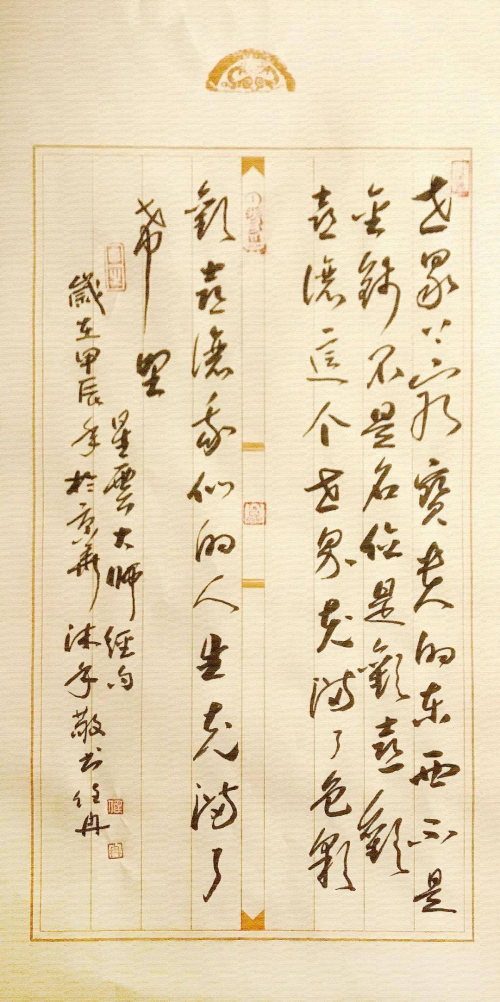 世界上最寶贵的东西不是
金錢不是名位是歡喜歡
喜讓這个世界充滿了色彩
歡喜讓我们的人生充滿了
希望
星雲大師經句
歲在甲辰年於京華沐手敬书任